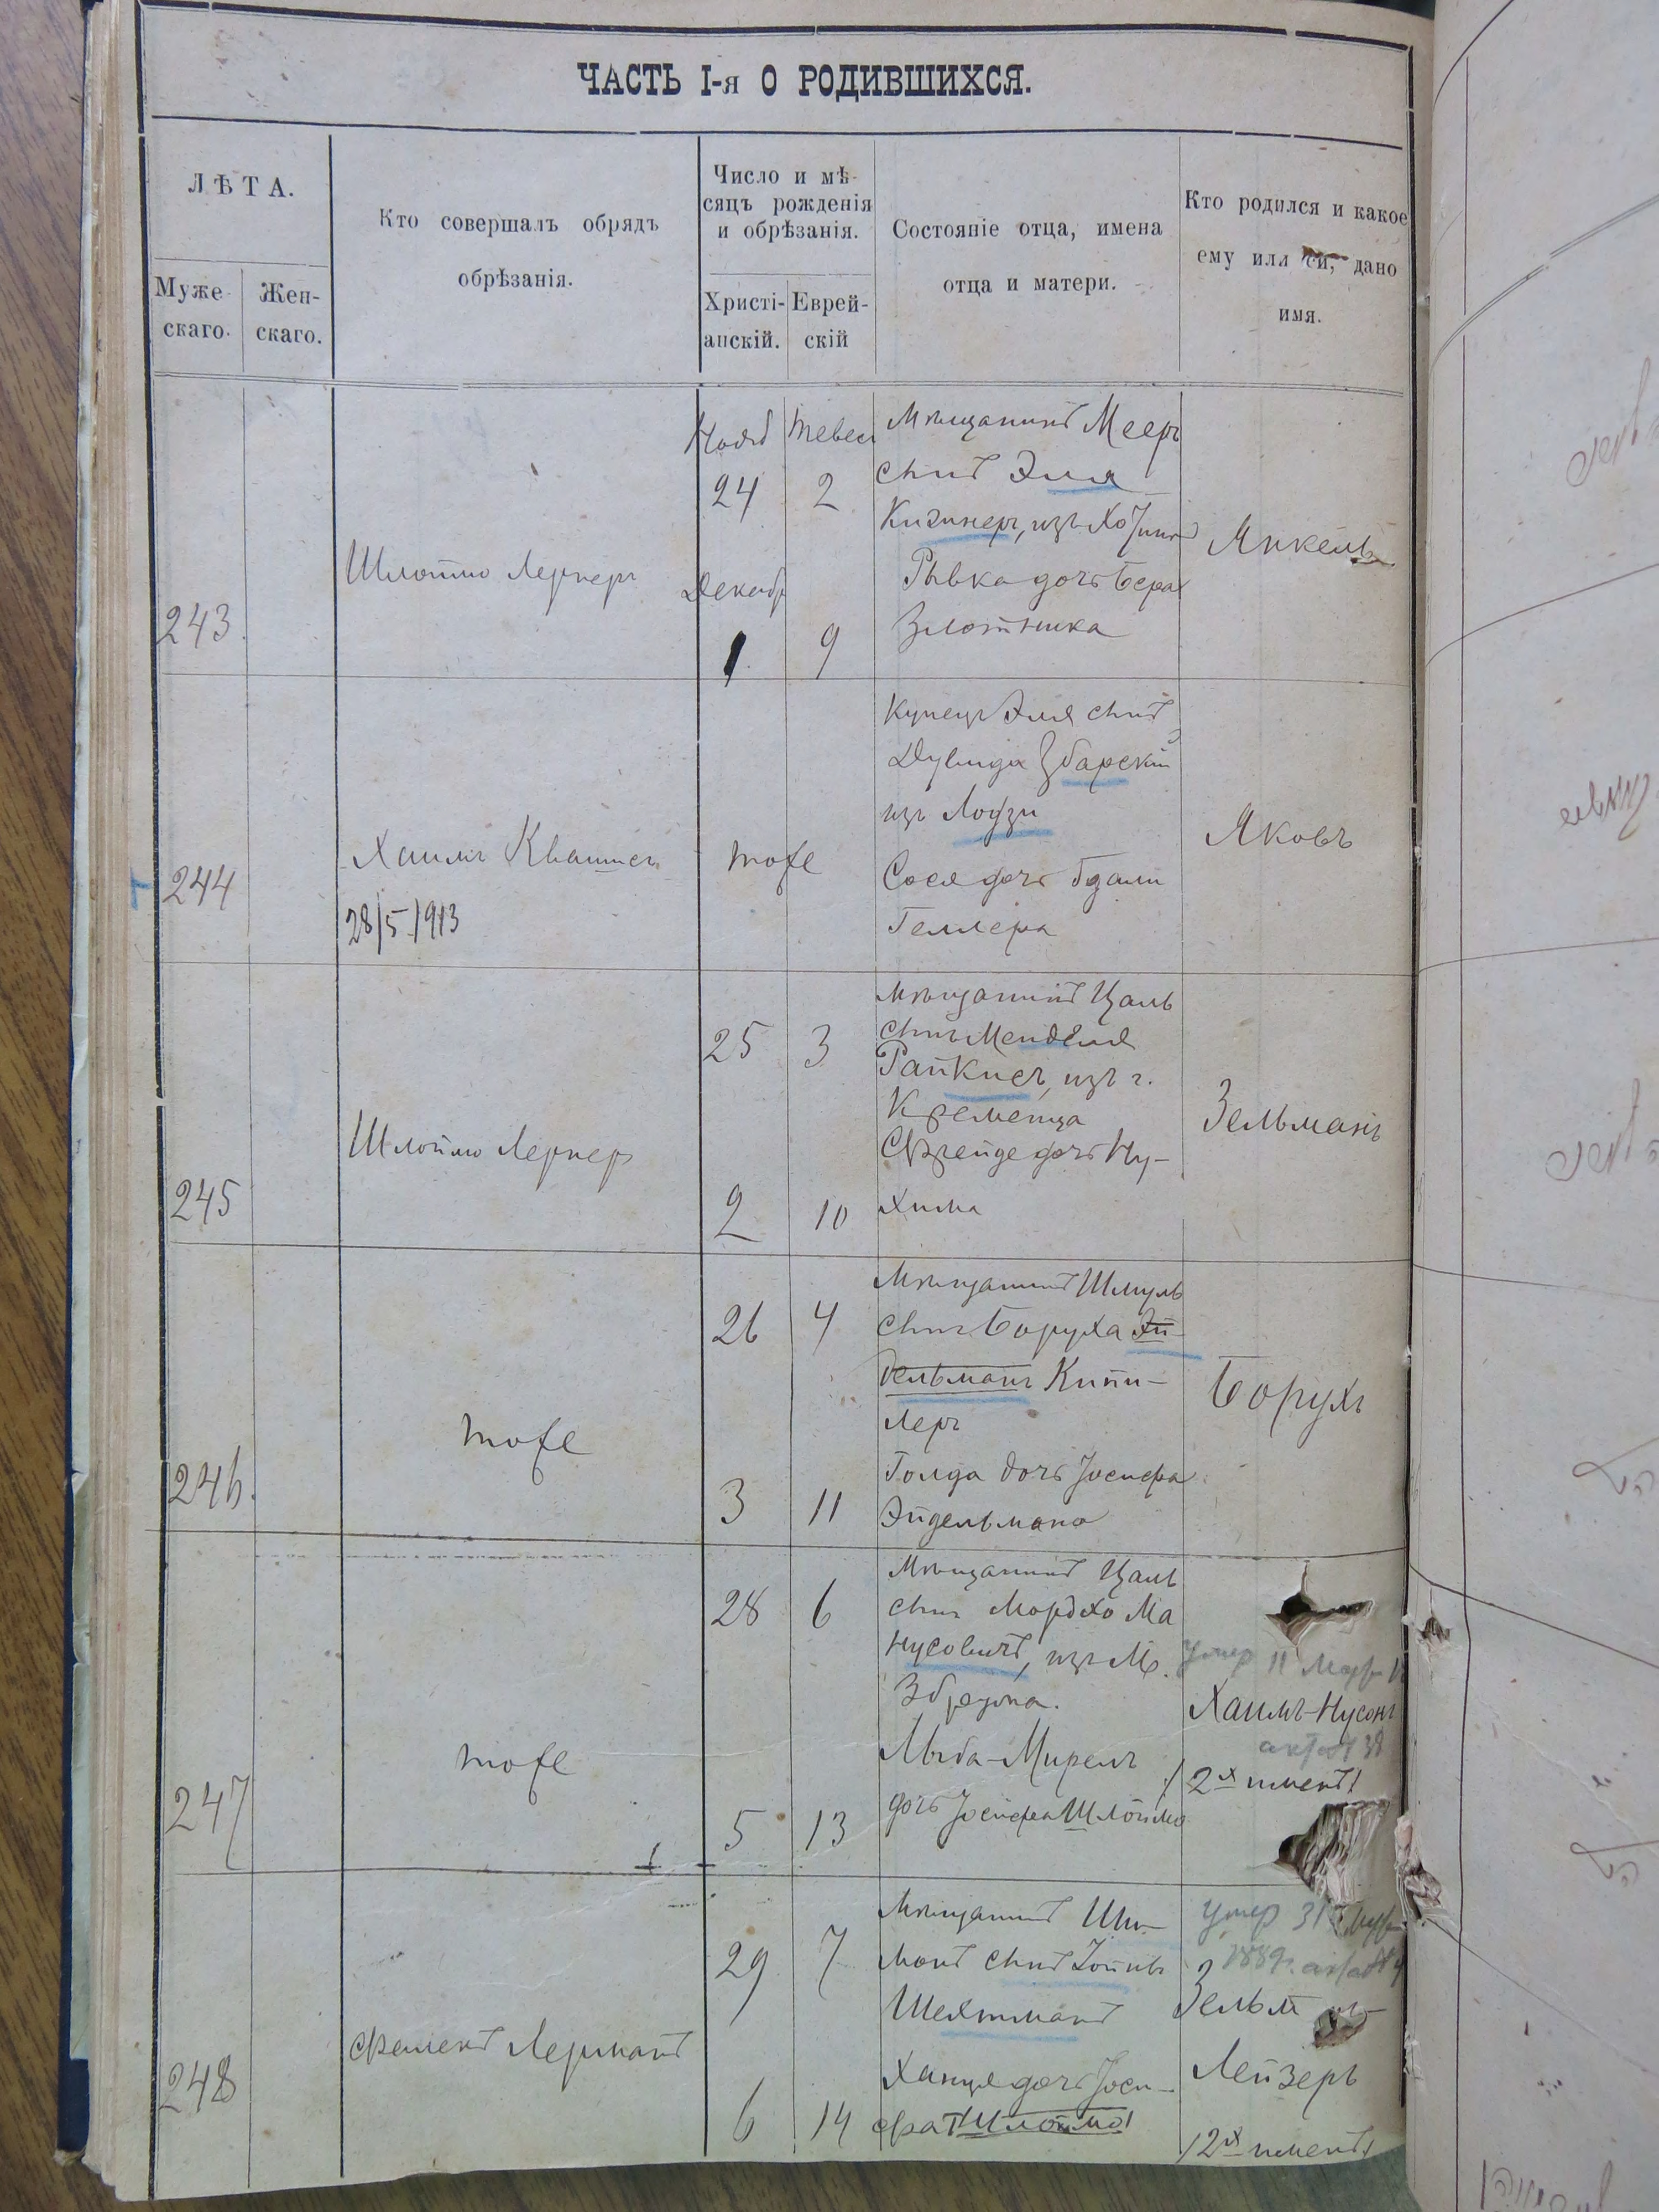 ЧАСТЬ I-я О РОДИВШИХСЯ.
ЛѢТА.
Муже-
скаго.
Жен-
скаго.
Кто совершалъ обрядъ
обрѣзанія.
Число и мѣ-
сяцъ рожденія
и обрѣзанія.
Христі-
анскій.
Еврей-
скій
Состояніе отца, имена
отца и матери.
Кто родился и какое
ему или ей, дано
имя.
243
Шлоймо Лернеръ
Нояб
24
Декабр
1
Тевес
2
9
Мѣщанинъ Мееръ
сынъ Эля
изъ Хотина
Рывка дочь Бера
Злотника
Янкель
244
Хаимъ
28/5/913
тоже
Купецъ Эля сынъ
Дувида Збарскій
изъ Лодзи
Сося дочь
Геллера
Яковъ
245
Шлоймо Лернеръ
25
3
2
10
Мѣщанинъ Цаль
сынъ Менделя
Райкисъ, изъ г.
Кременца
Фрейде дочь Ну-
хима
Зельманъ
246.
тоже
26
4
3
11
Мѣщанинъ Шмуль
сынъ Боруха Эй-
дельманъ Кипи-
леръ
Голда дочь Іосифа
Эйдельмана
Борухъ
247
тоже
28
6
5
13
Мѣщанинъ Цаль
сынъ Мордхо Ма
нусовичъ, изъ М.
Збрезна.
Лыба-Мирель
дочь Іосифа Шлоймо
умер 11
Хаимъ-Нусонъ
акт 38
/2х именъ/
248
Фалекъ Лерманъ
29
7
6
14
Мѣщанинъ Ши-
монъ сынъ Хоинъ
Шехтманъ
Ханця дочь Іоси-
фа /Шлоймо/
умер 31
1889г.
Зельм
Лейзеръ
/2х именъ/